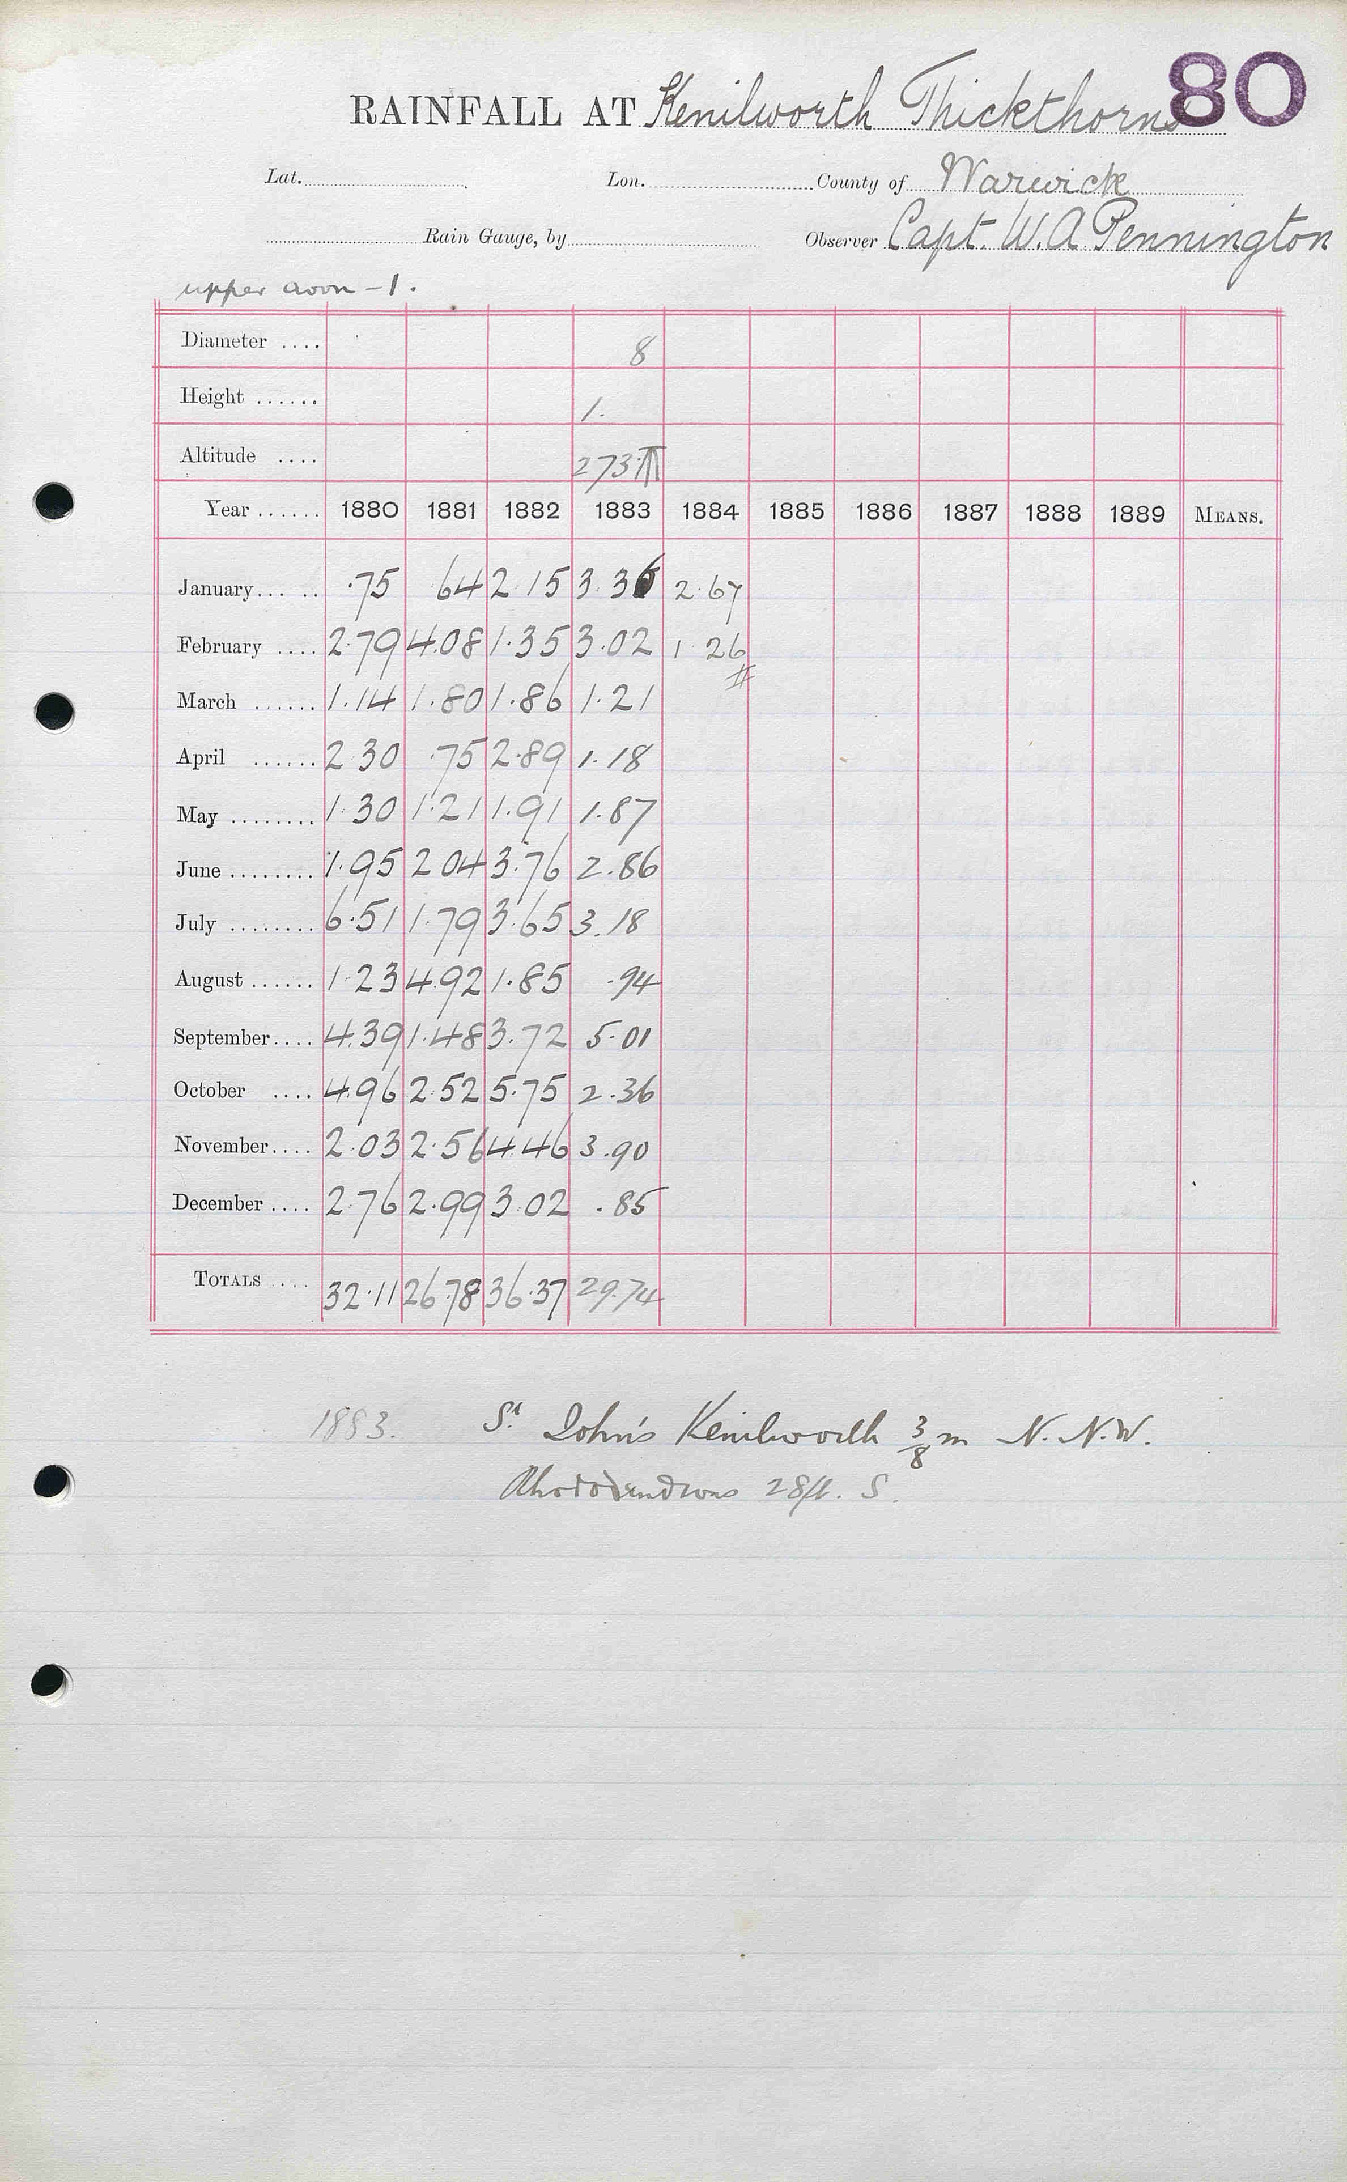 80
RAINFALL AT Kenilworth Thickthorns
Lat. Lon. County of Warwick
Rain Gauge, by Observer Capt. W. A Pennington
upper avon - 1.
Diameter .... 8
Height ...... 1.
Altitude .... 273 T
Year ...... 1880 1881 1882 1883 1884 1885 1886 1887 1888 1889 MEANS.
January ..... .75 64 2 15 3.36 2.67
February .... 2.79 4.08 1.35 3.02 1 26
March ...... 1.14 1.80 1.86 1.21
April ...... 2 30 .75 2.89 1.18
May ........ 1.30 1.21 1.91 1.87
June ........ 1.95 2 04 3.76 2.86
July ........ 6.51 1.79 3.65 3.18
August ...... 1.23 4.92 1.85 .94
September .... 4.39 1.48 3.72 5.01
October .... 4.96 2.52 5.75 2.36
November .... 2.03 2.56 4.46 3.90
December .... 2.76 2.99 3.02 .85
TOTALS .... 32.11 26.78 36.37 29.74
1883. St John's Kenilworth 3/8 m N. N. W.
Rhododendrons 28ft. S.